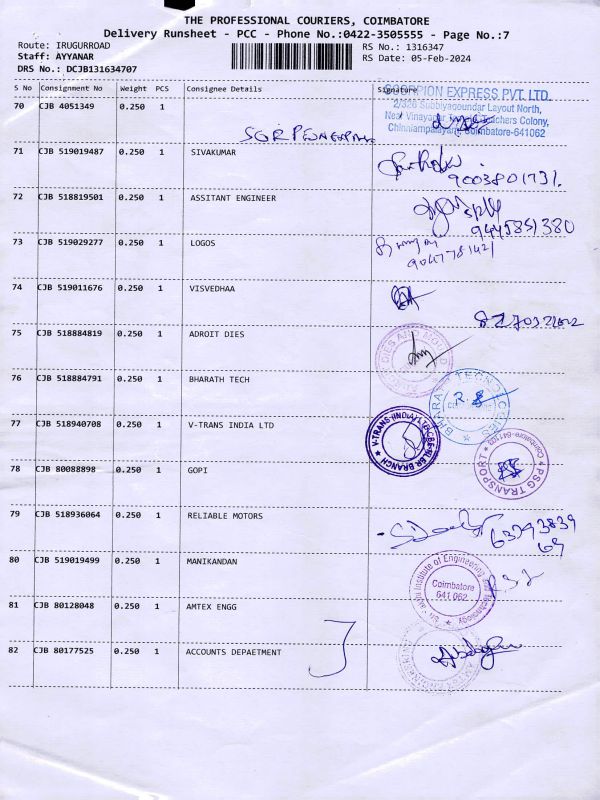 THE PROFESSIONAL COURIERS, COIMBATORE
Delivery Runsheet - PCC - Phone No.:0422-3505555 - Page No.:7
Route: IRUGURROAD RS No.: 1316347
Staff: AYYANAR RS Date: 05-Feb-2024
DRS No.: DCJB131634707
S No Consignment No Weight PCS Consignee Details Signature
70 CJB 4051349 0.250 1
SCORPION EXPRESS PVT. LTD.
2/326 Subbiyagoundar Layout North,
Near Vinayagar Temple, Teachers Colony,
Chinniampalayam, Coimbatore-641062
71 CJB 519019487 0.250 1 SIVAKUMAR
9003801731.
72 CJB 518819501 0.250 1 ASSITANT ENGINEER
9445851380
73 CJB 519029277 0.250 1 LOGOS
9047781421
74 CJB 519011676 0.250 1 VISVEDHAA
75 CJB 518884819 0.250 1 ADROIT DIES
DIES AND MOULD
76 CJB 518884791 0.250 1 BHARATH TECH
BHARATH TECNOLOGIES
77 CJB 518940708 0.250 1 V-TRANS INDIA LTD
V-TRANS (INDIA) LTD BRANCH
78 CJB 80088898 0.250 1 GOPI
4 PSG TRANSPORT Coimbatore-641103
79 CJB 518936064 0.250 1 RELIABLE MOTORS
63793839
69
80 CJB 519019499 0.250 1 MANIKANDAN
Institute of Engineering and Technology
Coimbatore
641 062
81 CJB 80128048 0.250 1 AMTEX ENGG
82 CJB 80177525 0.250 1 ACCOUNTS DEPAETMENT